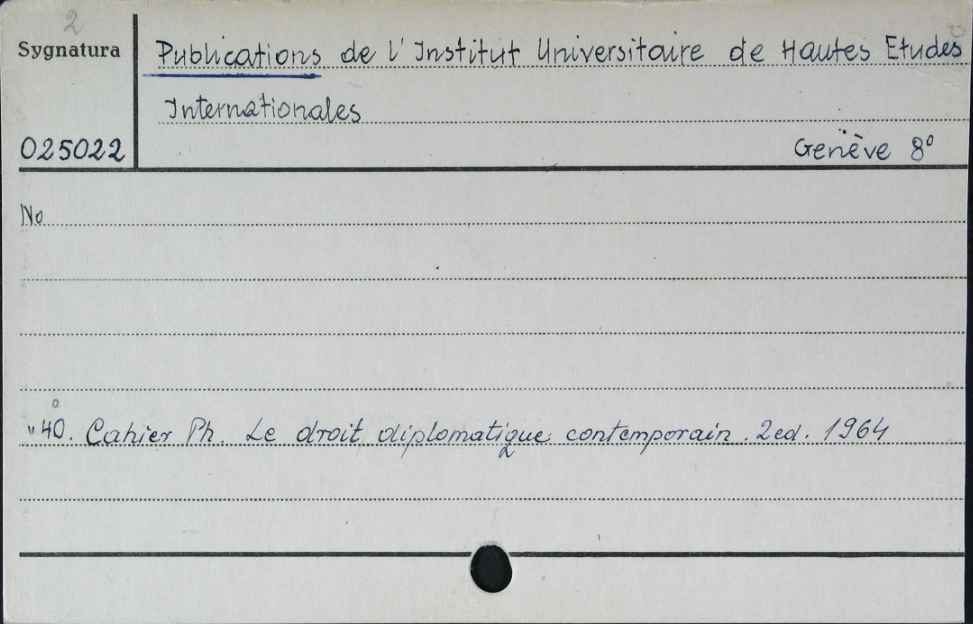 2
Sygnatura
Publications de l'Institut Universitaire de Hautes Etudes
Internationales
025022
Genève 8°
No
"40. Cahier Ph. Le droit diplomatique contemporain. 2ed. 1964